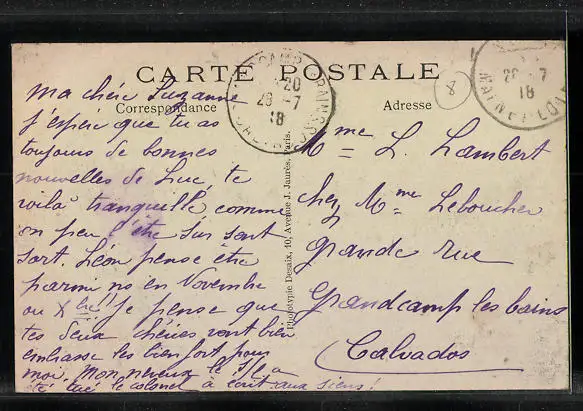 CARTE POSTALE
Correspondance
Adresse
8
ma chère Suzanne
j'espère que tu as
toujours de bonnes
nouvelles de Luc, te
voilà tranquille comme
on peu l'être sur sont
sort. Léon pense être
parmi ns en Novembre
ou Xbre!! je pense que
tes deux chéries vont bien
embrasse les bien fort pour
moi. Mon neveux le
été tué le colonel à écrit aux siens!
Mme L. Lambert
chez Mme Leboucher
grande rue
Grandcamp les bains
Calvados
Phototypie Desaix, 40, Avenue J. Jaurès, Paris.
GRANDCAMP
20
26 -7
18
CALVADOS
26 -7
18